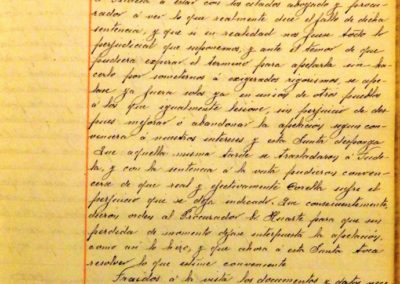 á Tudela á estar con los citados abogado y procu-
rador á ver lo que realmente dice el fallo de dicha
sentencia, y que si en realidad nos fuese todo lo
perjudicial que suponemos, y ante el temor de que
pudiera expirar el termino para apelarla sin ha-
cerlo por someternos á exigerados rigorismos, se ape-
lase ya fuera solos ya en union de otros pueblos
á los que igualmente lesione, sin perjuicio de des-
pues mejorar ó abandonar la apelacion segun con-
venciera á nuestros intereses y esta Junta disponga
Que aquella misma tarde se trasladaron á Tude-
la, y con la sentencia á la vista pudieron conven-
cerse de que real y efectivamente Corella sufre el
perjuicio que se deja indicado. Que consiguientemente,
dieron orden al Procurador Sr Huarte para que sin
perdida de momento dejase interpuesta la apelacion,
como asi lo hizo, y que ahora á esta Junta toca
resolver lo que estime conveniente
Traidos á la vista los documentos y datos nece